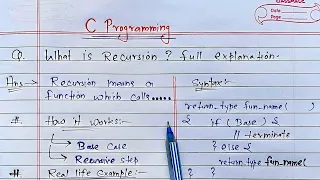 CLASSMATE
Date
Page
C Programming
Q. What is Recursion? full explanation.
Ans → Recursion means a
function which calls.....
# How it works:-
→ Base Case
→ Recursive step
# Real life example:-
Syntax:-
return_type fun_name( )
{ if (Base) {
// terminate
} else {
return_type fun_name(
} }